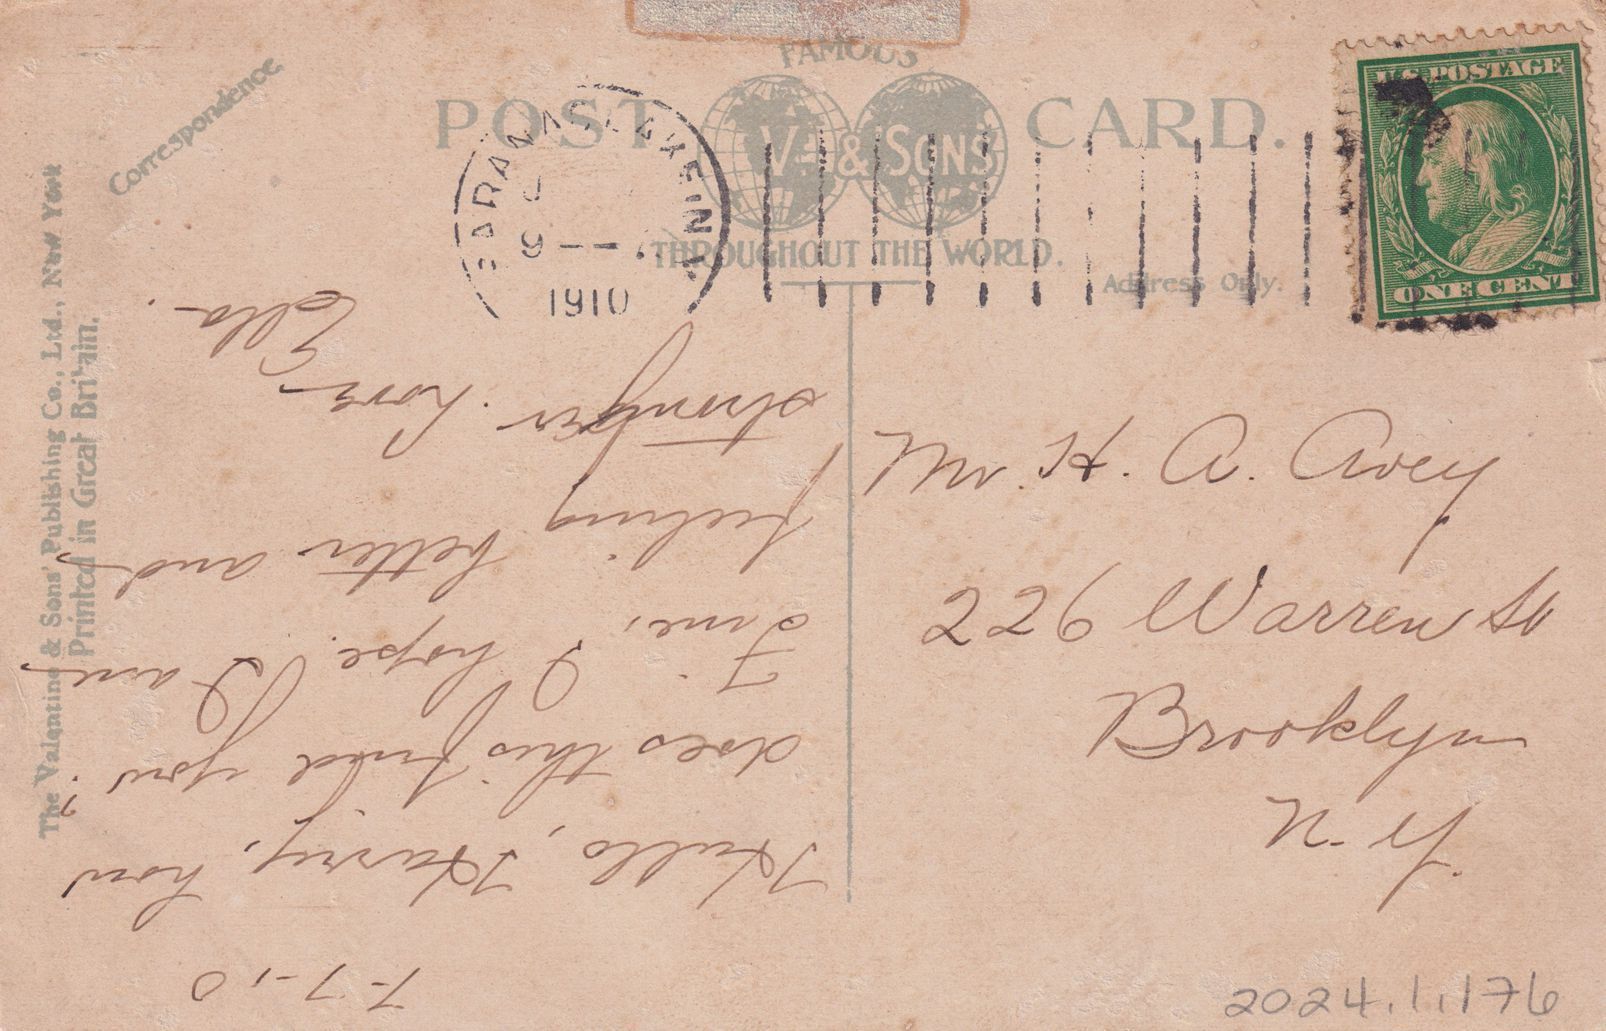 Correspondence
POST CARD.
FAMOUS
V. & SONS
THROUGHOUT THE WORLD.
Address Only.
The Valentine & Sons' Publishing Co., Ltd., New York
Printed in Great Britain.
SARANAC LAKE N.Y.
1910
U.S. POSTAGE
ONE CENT
7-7-10
Hello, Harry, how
does this find you?
Fine, I hope. I am
feeling better and
stronger. Love
Ella.
Mr. H. A. Avey
226 Warren St
Brooklyn
N-Y.
2024.1.176